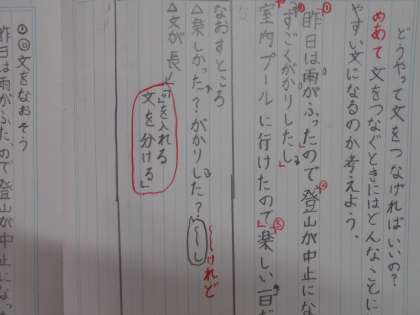 どうやって文をつなげればいいの？
めあて 文をつなぐときにはどんなことに
やすい文になるのか考えよう。
① 昨日は雨がふったので登山が中止にな
すごくがかりした「し」
室内プールに行けたので」楽しい一日だ
なおすところ
△楽しかった？がかりした？ 〜し 〜けれど
△文が長い
「。」を入れる
文を分ける」
①② 文をなおそう
昨日は雨がふた、ので登山が中止になっ